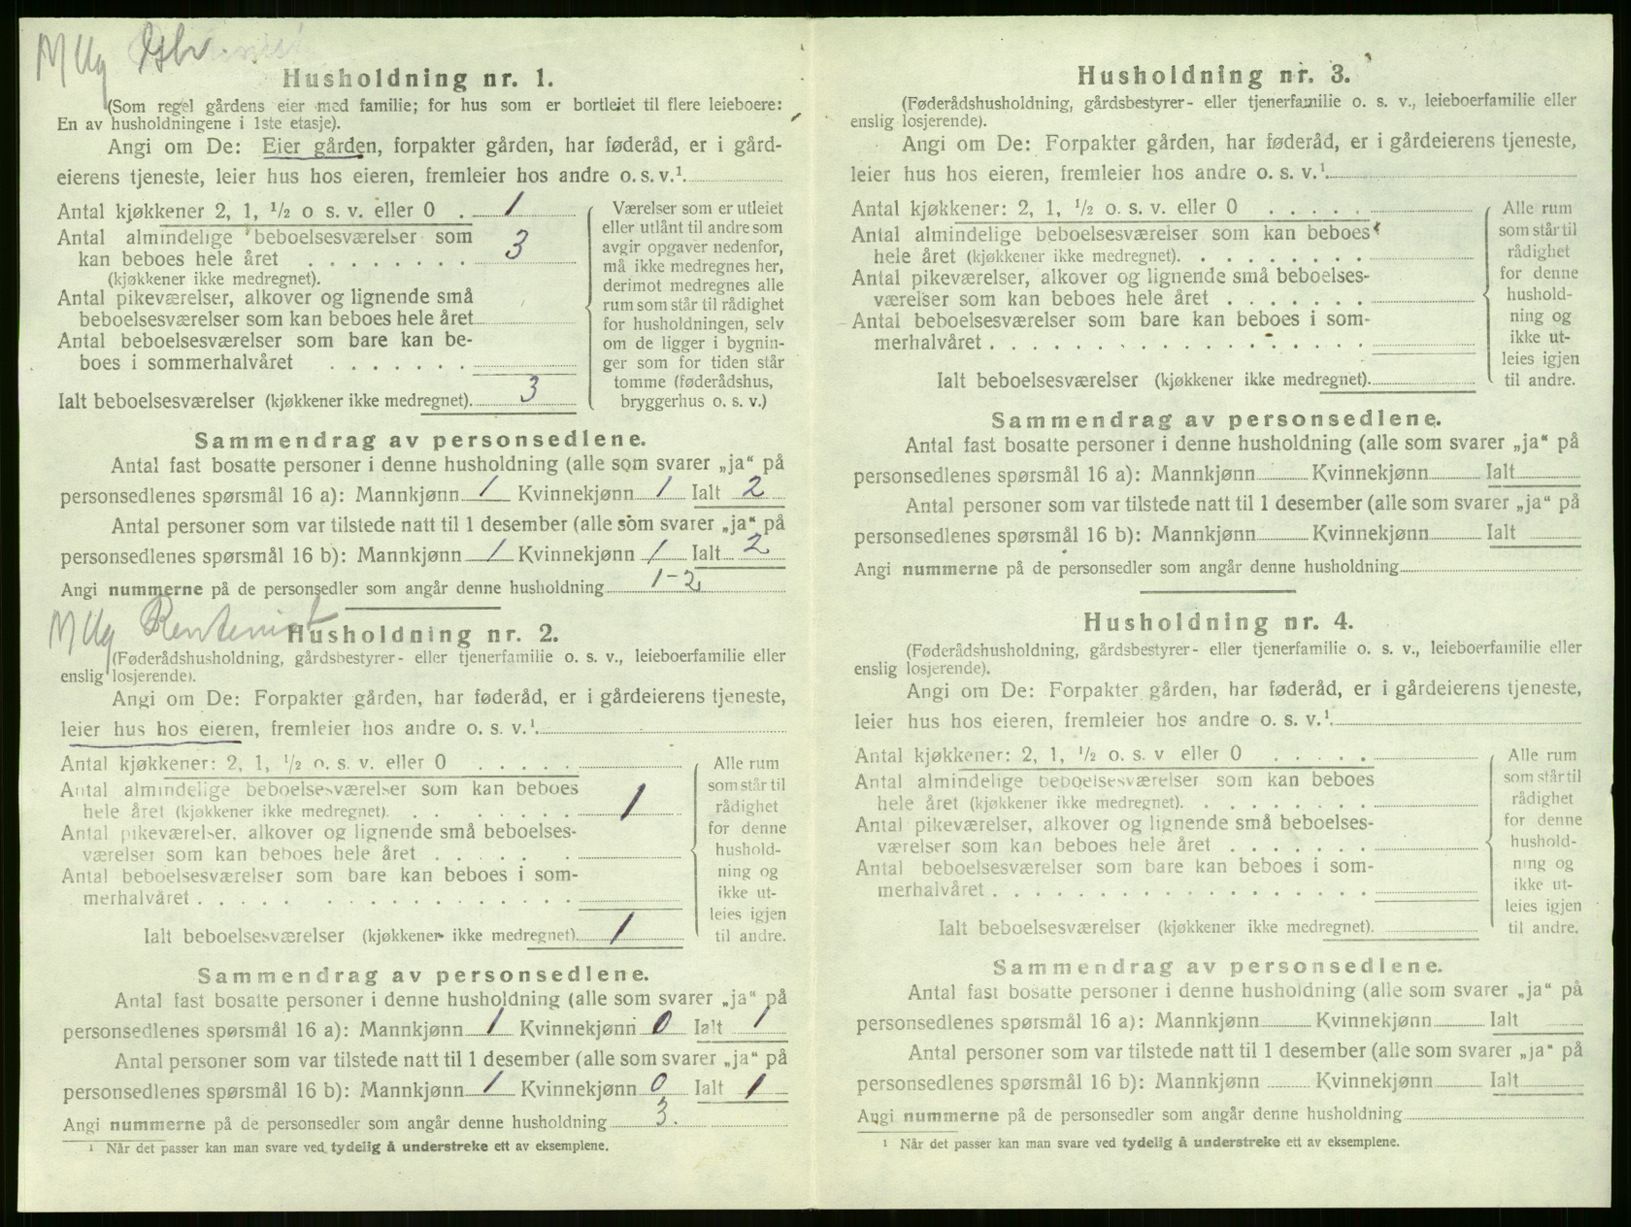 M Ug Gbr.
Husholdning nr. 1.
(Som regel gårdens eier med familie; for hus som er bortleiet til flere leieboere:
En av husholdningene i 1ste etasje).
Angi om De: Eier gården, forpakter gården, har føderåd, er i gård-
eierens tjeneste, leier hus hos eieren, fremleier hos andre o. s. v.¹
Antal kjøkkener 2, 1, ½ o s. v. eller 0 . 1
Antal almindelige beboelsesværelser som
kan beboes hele året . . . . . . . . 3
(kjøkkener ikke medregnet).
Antal pikeværelser, alkover og lignende små
beboelsesværelser som kan beboes hele året
Antal beboelsesværelser som bare kan be-
boes i sommerhalvåret . . . . . . .
Ialt beboelsesværelser (kjøkkener ikke medregnet). 3
Værelser som er utleiet
eller utlånt til andre som
avgir opgaver nedenfor,
må ikke medregnes her,
derimot medregnes alle
rum som står til rådighet
for husholdningen, selv
om de ligger i bygnin-
ger som for tiden står
tomme (føderådshus,
bryggerhus o. s. v.)
Sammendrag av personsedlene.
Antal fast bosatte personer i denne husholdning (alle som svarer „ja“ på
personsedlenes spørsmål 16 a): Mannkjønn 1 Kvinnekjønn 1 Ialt 2
Antal personer som var tilstede natt til 1 desember (alle som svarer „ja“ på
personsedlenes spørsmål 16 b): Mannkjønn 1 Kvinnekjønn 1 Ialt 2
Angi nummerne på de personsedler som angår denne husholdning 1-2
M Ug Rentenist
Husholdning nr. 2.
(Føderådshusholdning, gårdsbestyrer- eller tjenerfamilie o. s. v., leieboerfamilie eller
enslig losjerende).
Angi om De: Forpakter gården, har føderåd, er i gårdeierens tjeneste,
leier hus hos eieren, fremleier hos andre o. s. v.¹
Antal kjøkkener: 2, 1, ½ o. s. v. eller 0 . . . . .
Antal almindelige beboelsesværelser som kan beboes
hele året (kjøkkener ikke medregnet). . . . . . . . 1
Antal pikeværelser, alkover og lignende små beboelses-
værelser som kan beboes hele året . . . . . .
Antal beboelsesværelser som bare kan beboes i som-
merhalvåret . . . . . . . . . . . . . . .
Ialt beboelsesværelser (kjøkkener ikke medregnet). 1
Alle rum
som står til
rådighet
for denne
hushold-
ning og
ikke ut-
leies igjen
til andre.
Sammendrag av personsedlene.
Antal fast bosatte personer i denne husholdning (alle som svarer „ja“ på
personsedlenes spørsmål 16 a): Mannkjønn 1 Kvinnekjønn 0 Ialt 1
Antal personer som var tilstede natt til 1 desember (alle som svarer „ja“ på
personsedlenes spørsmål 16 b): Mannkjønn 1 Kvinnekjønn 0 Ialt 1
Angi nummerne på de personsedler som angår denne husholdning 3.
¹ Når det passer kan man svare ved tydelig å understreke ett av eksemplene.
Husholdning nr. 3.
(Føderådshusholdning, gårdsbestyrer- eller tjenerfamilie o. s. v., leieboerfamilie eller
enslig losjerende).
Angi om De: Forpakter gården, har føderåd, er i gårdeierens tjeneste,
leier hus hos eieren, fremleier hos andre o. s. v.¹
Antal kjøkkener: 2, 1, ½ o. s. v. eller 0 . . . . .
Antal almindelige beboelsesværelser som kan beboes
hele året (kjøkkener ikke medregnet). . . . . . . . .
Antal pikeværelser, alkover og lignende små beboelses-
værelser som kan beboes hele året . . . . . . .
Antal beboelsesværelser som bare kan beboes i som-
merhalvåret . . . . . . . . . . . . . . . . .
Ialt beboelsesværelser (kjøkkener ikke medregnet).
Alle rum
som står til
rådighet
for denne
hushold-
ning og
ikke ut-
leies igjen
til andre.
Sammendrag av personsedlene.
Antal fast bosatte personer i denne husholdning (alle som svarer „ja“ på
personsedlenes spørsmål 16 a): Mannkjønn Kvinnekjønn Ialt
Antal personer som var tilstede natt til 1 desember (alle som svarer „ja“ på
personsedlenes spørsmål 16 b): Mannkjønn Kvinnekjønn Ialt
Angi nummerne på de personsedler som angår denne husholdning
Husholdning nr. 4.
(Føderådshusholdning, gårdsbestyrer- eller tjenerfamilie o. s. v., leieboerfamilie eller
enslig losjerende).
Angi om De: Forpakter gården, har føderåd, er i gårdeierens tjeneste,
leier hus hos eieren, fremleier hos andre o. s. v.¹
Antal kjøkkener: 2, 1, ½ o. s. v eller 0 . . . . .
Antal almindelige beboelsesværelser som kan beboes
hele året (kjøkkener ikke medregnet). . . . . . . . .
Antal pikeværelser, alkover og lignende små beboelses-
værelser som kan beboes hele året . . . . . . .
Antal beboelsesværelser som bare kan beboes i som-
merhalvåret . . . . . . . . . . . . . . . . .
Ialt beboelsesværelser (kjøkkener ikke medregnet).
Alle rum
som står til
rådighet
for denne
hushold-
ning og
ikke ut-
leies igjen
til andre.
Sammendrag av personsedlene.
Antal fast bosatte personer i denne husholdning (alle som svarer „ja“ på
personsedlenes spørsmål 16 a): Mannkjønn Kvinnekjønn Ialt
Antal personer som var tilstede natt til 1 desember (alle som svarer „ja“ på
personsedlenes spørsmål 16 b): Mannkjønn Kvinnekjønn Ialt
Angi nummerne på de personsedler som angår denne husholdning
¹ Når det passer kan man svare ved tydelig å understreke ett av eksemplene.